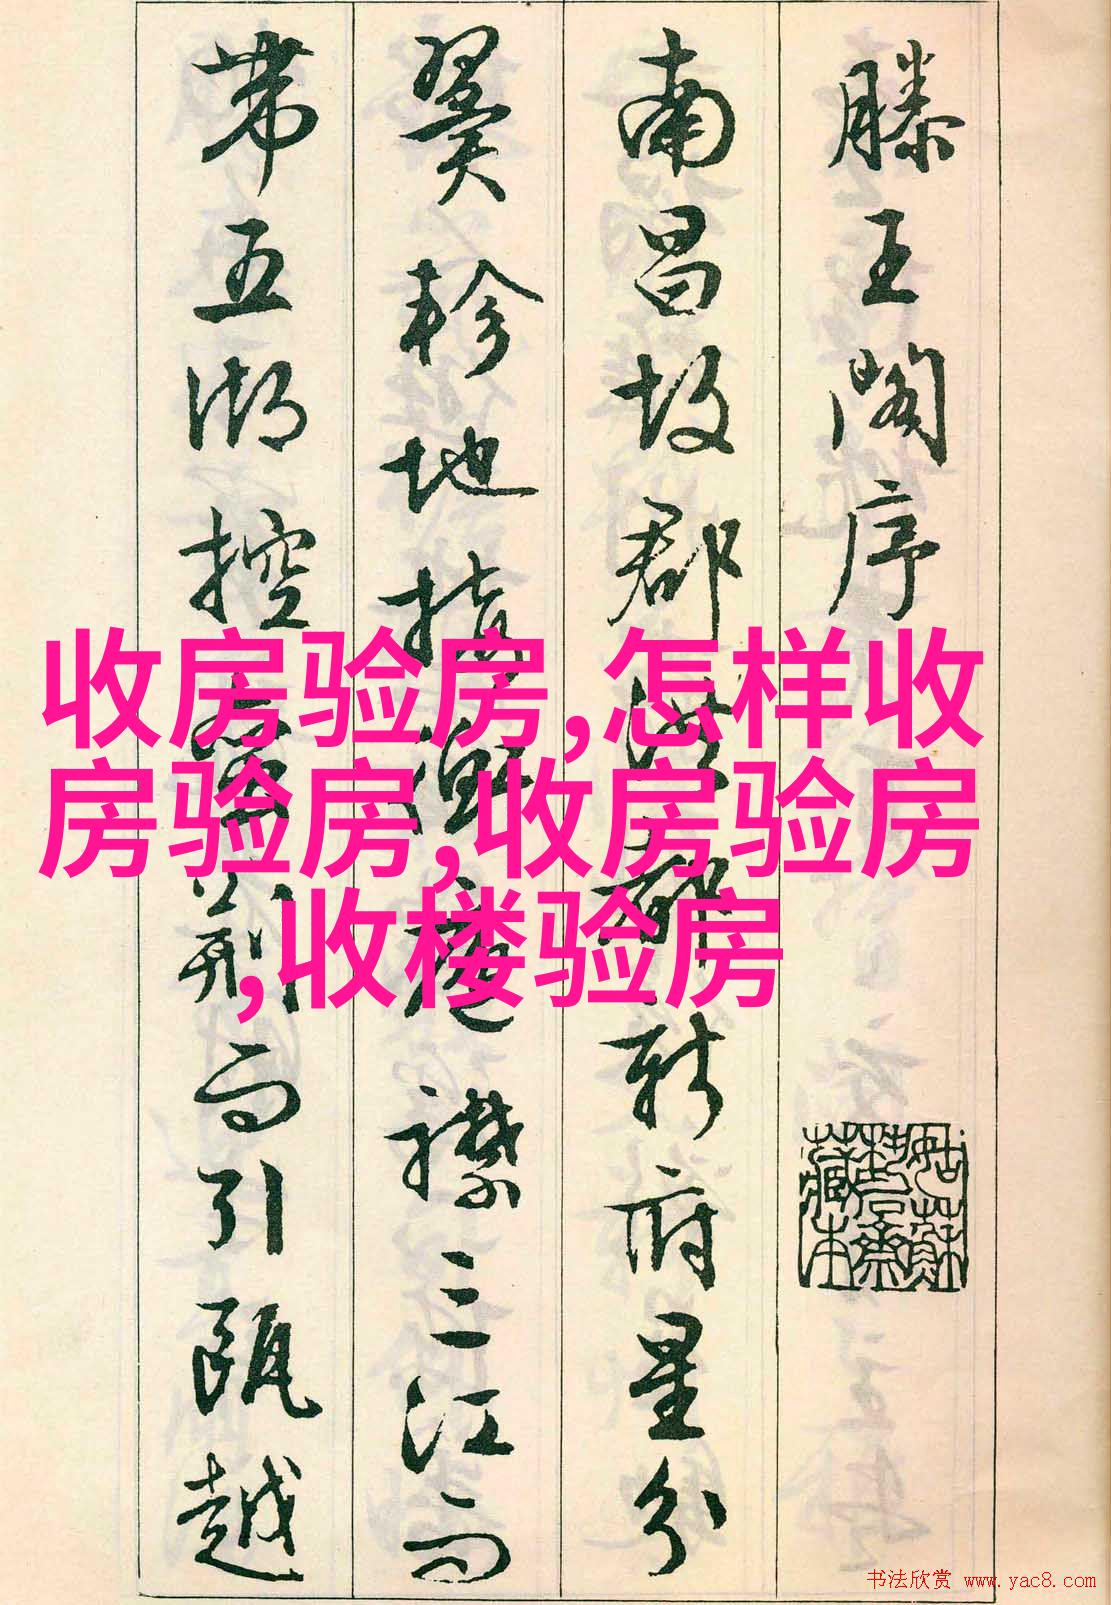 滕王閣序
南昌故郡洪都新府星分
翼軫地接衡廬襟三江而
帶五湖控蠻荊而引甌越
收房验房,怎样收
房验房,收房验房
,收楼验房
书法欣赏 www.yac8.com